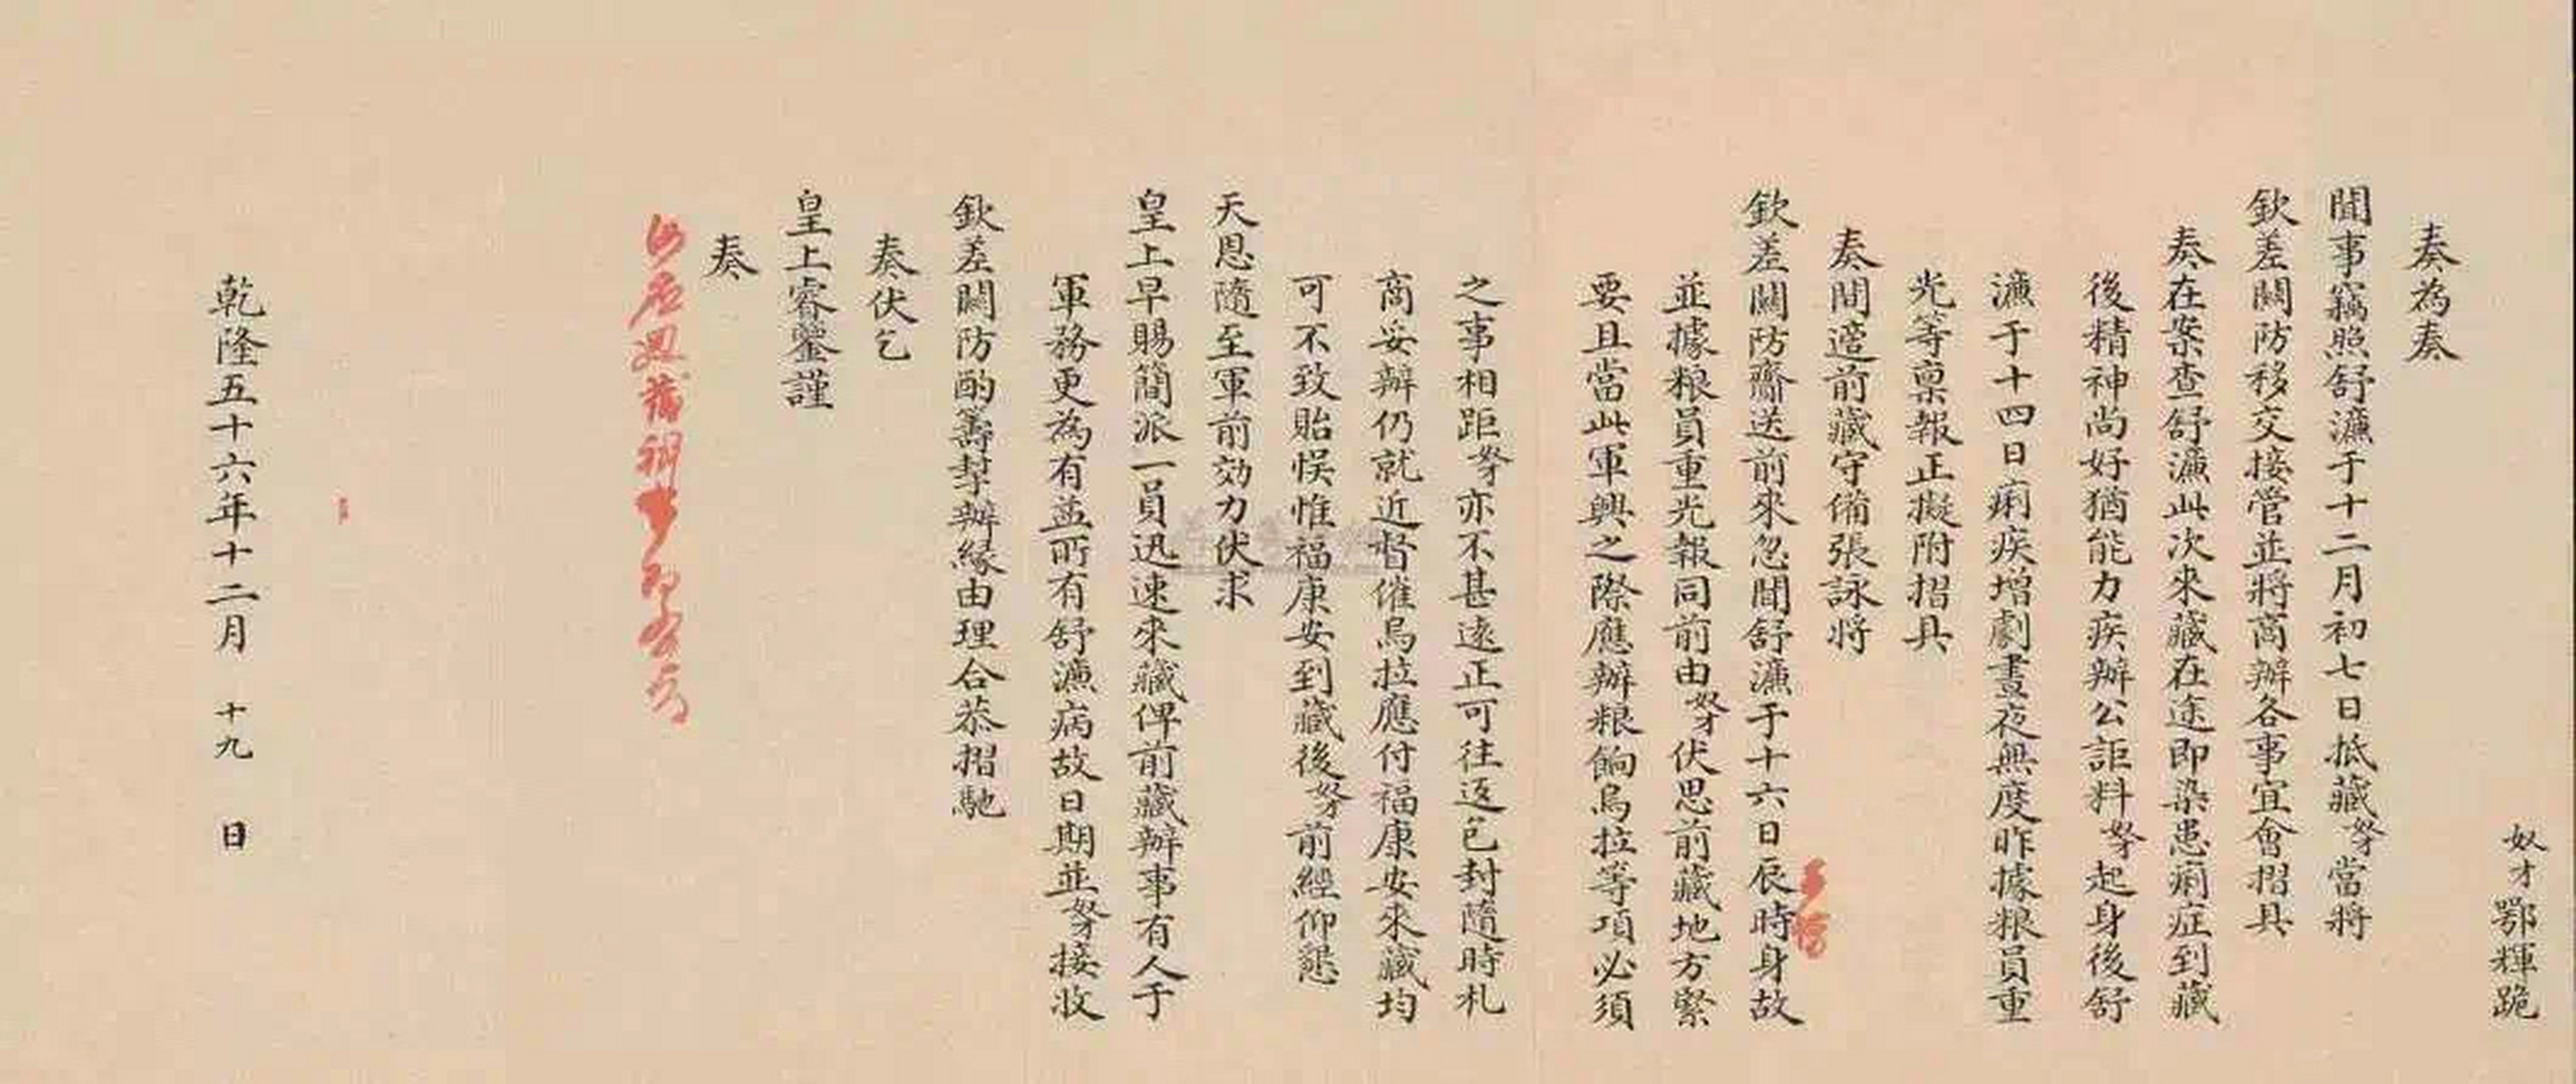 奴才鄂輝跪
奏為奏
聞事竊照舒濂于十二月初七日抵藏奴才當將
欽差關防移交接管並將商辦各事宜會摺具
奏在案查舒濂此次來藏在途即染患痢症到藏
後精神尚好猶能力疾辦公詎料奴才起身後舒
濂于十四日痢疾增劇晝夜無度昨據粮員重
光等稟報正擬附摺具
奏間適前藏守備張詠將
欽差關防齎送前來忽聞舒濂于十六日辰時身故
可惜
並據粮員重光報同前由奴才伏思前藏地方緊
要且當此軍興之際應辦粮餉烏拉等項必須
之事相距奴才亦不甚遠正可往返包封隨時札
商妥辦仍就近督催烏拉應付福康安來藏均
可不致貽悞惟福康安到藏後奴才前經仰懇
天恩隨至軍前効力伏求
皇上早賜簡派一員迅速來藏俾前藏辦事有人于
軍務更為有益所有舒濂病故日期並奴才接收
欽差關防酌籌挐辦緣由理合恭摺馳
奏伏乞
皇上睿鑒謹
奏
乾隆五十六年十二月十九日